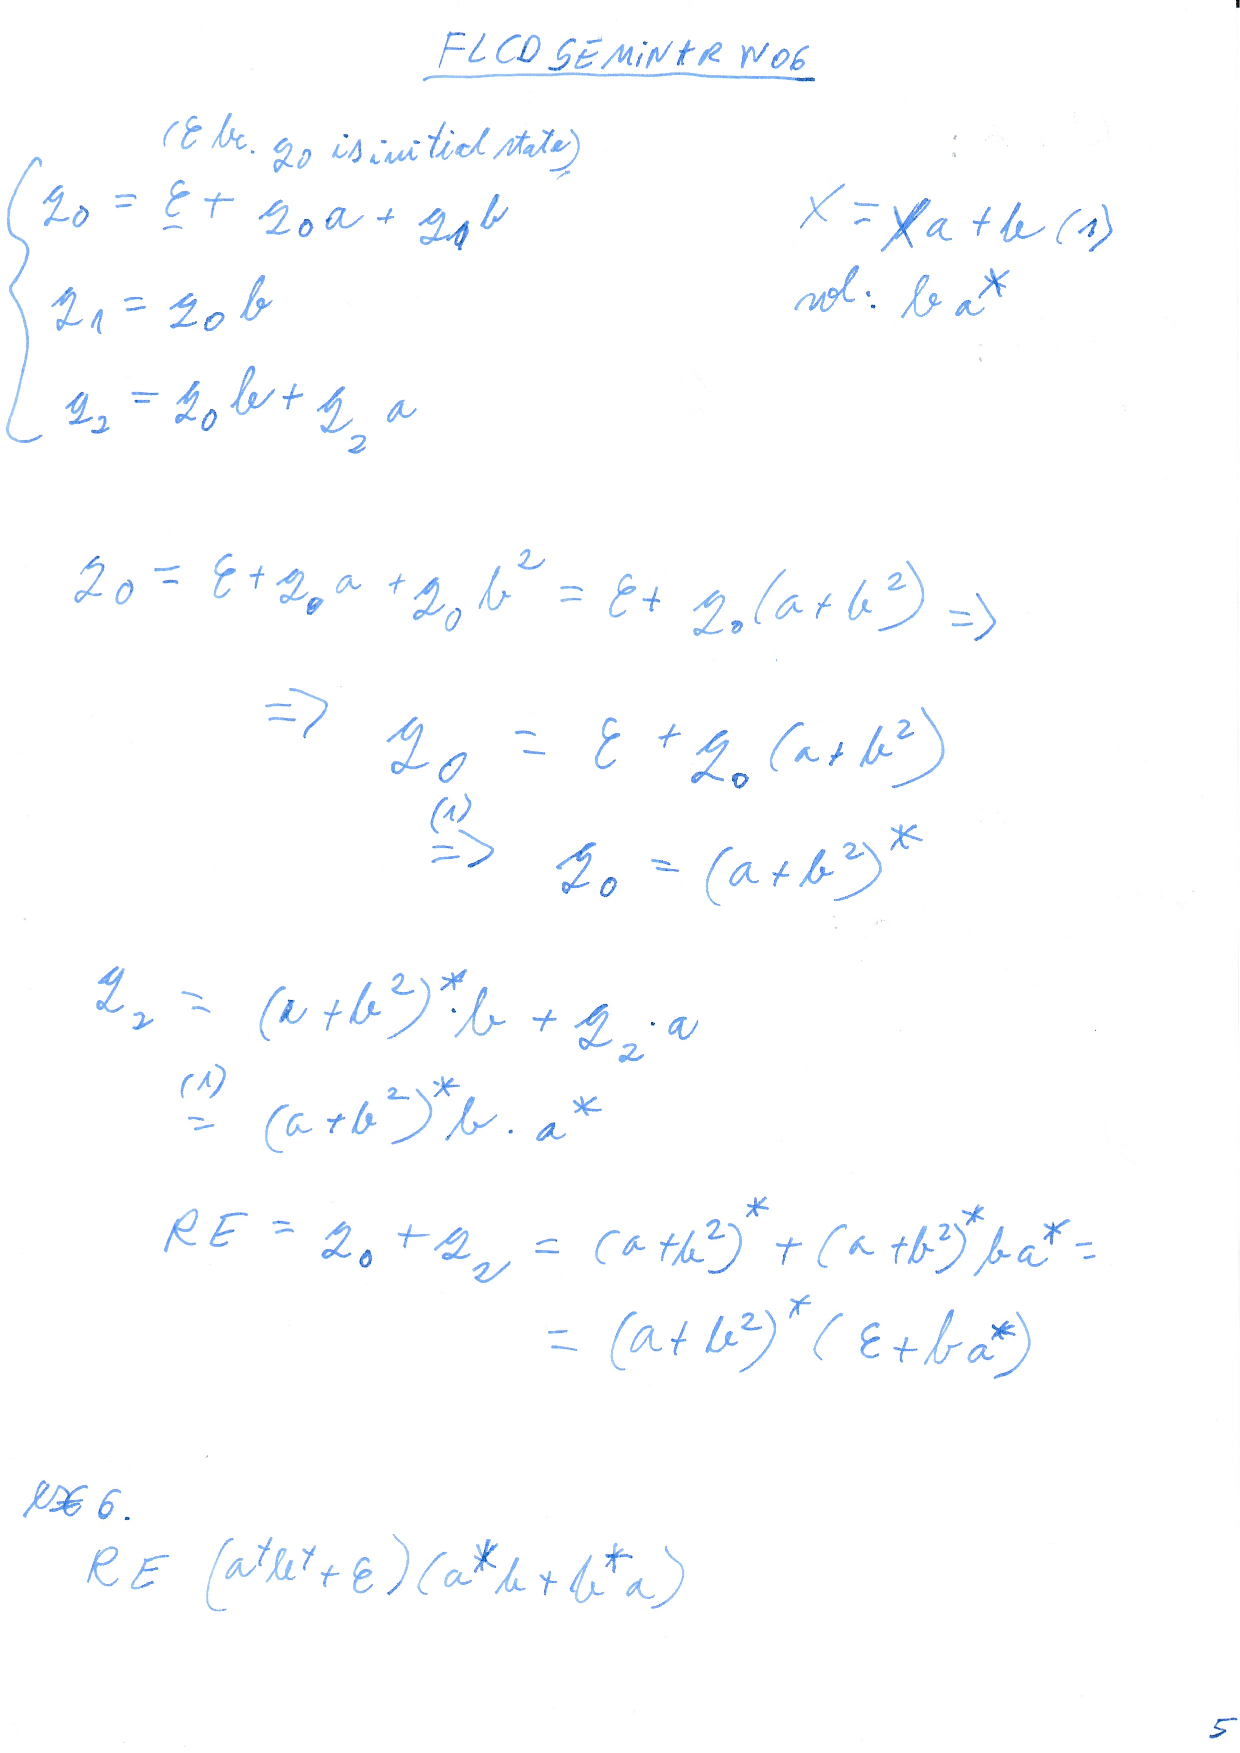 FLCD SEMINAR W06
(ε bc. q0 is initial state)
q0 = ε + q0 a + q1 b
q1 = q0 b
q2 = q0 b + q2 a
X = Xa + b (1)
sol: b a*
q0 = ε + q0 a + q0 b² = ε + q0 (a + b²) =>
=> q0 = ε + q0 (a + b²)
(1)
=> q0 = (a + b²)*
q2 = (a + b²)* · b + q2 · a
(1)
= (a + b²)* b · a*
RE = q0 + q2 = (a + b²)* + (a + b²)* b a* =
= (a + b²)* (ε + b a*)
ex 6.
RE (a⁺b⁺ + ε)(a*b + b*a)
5